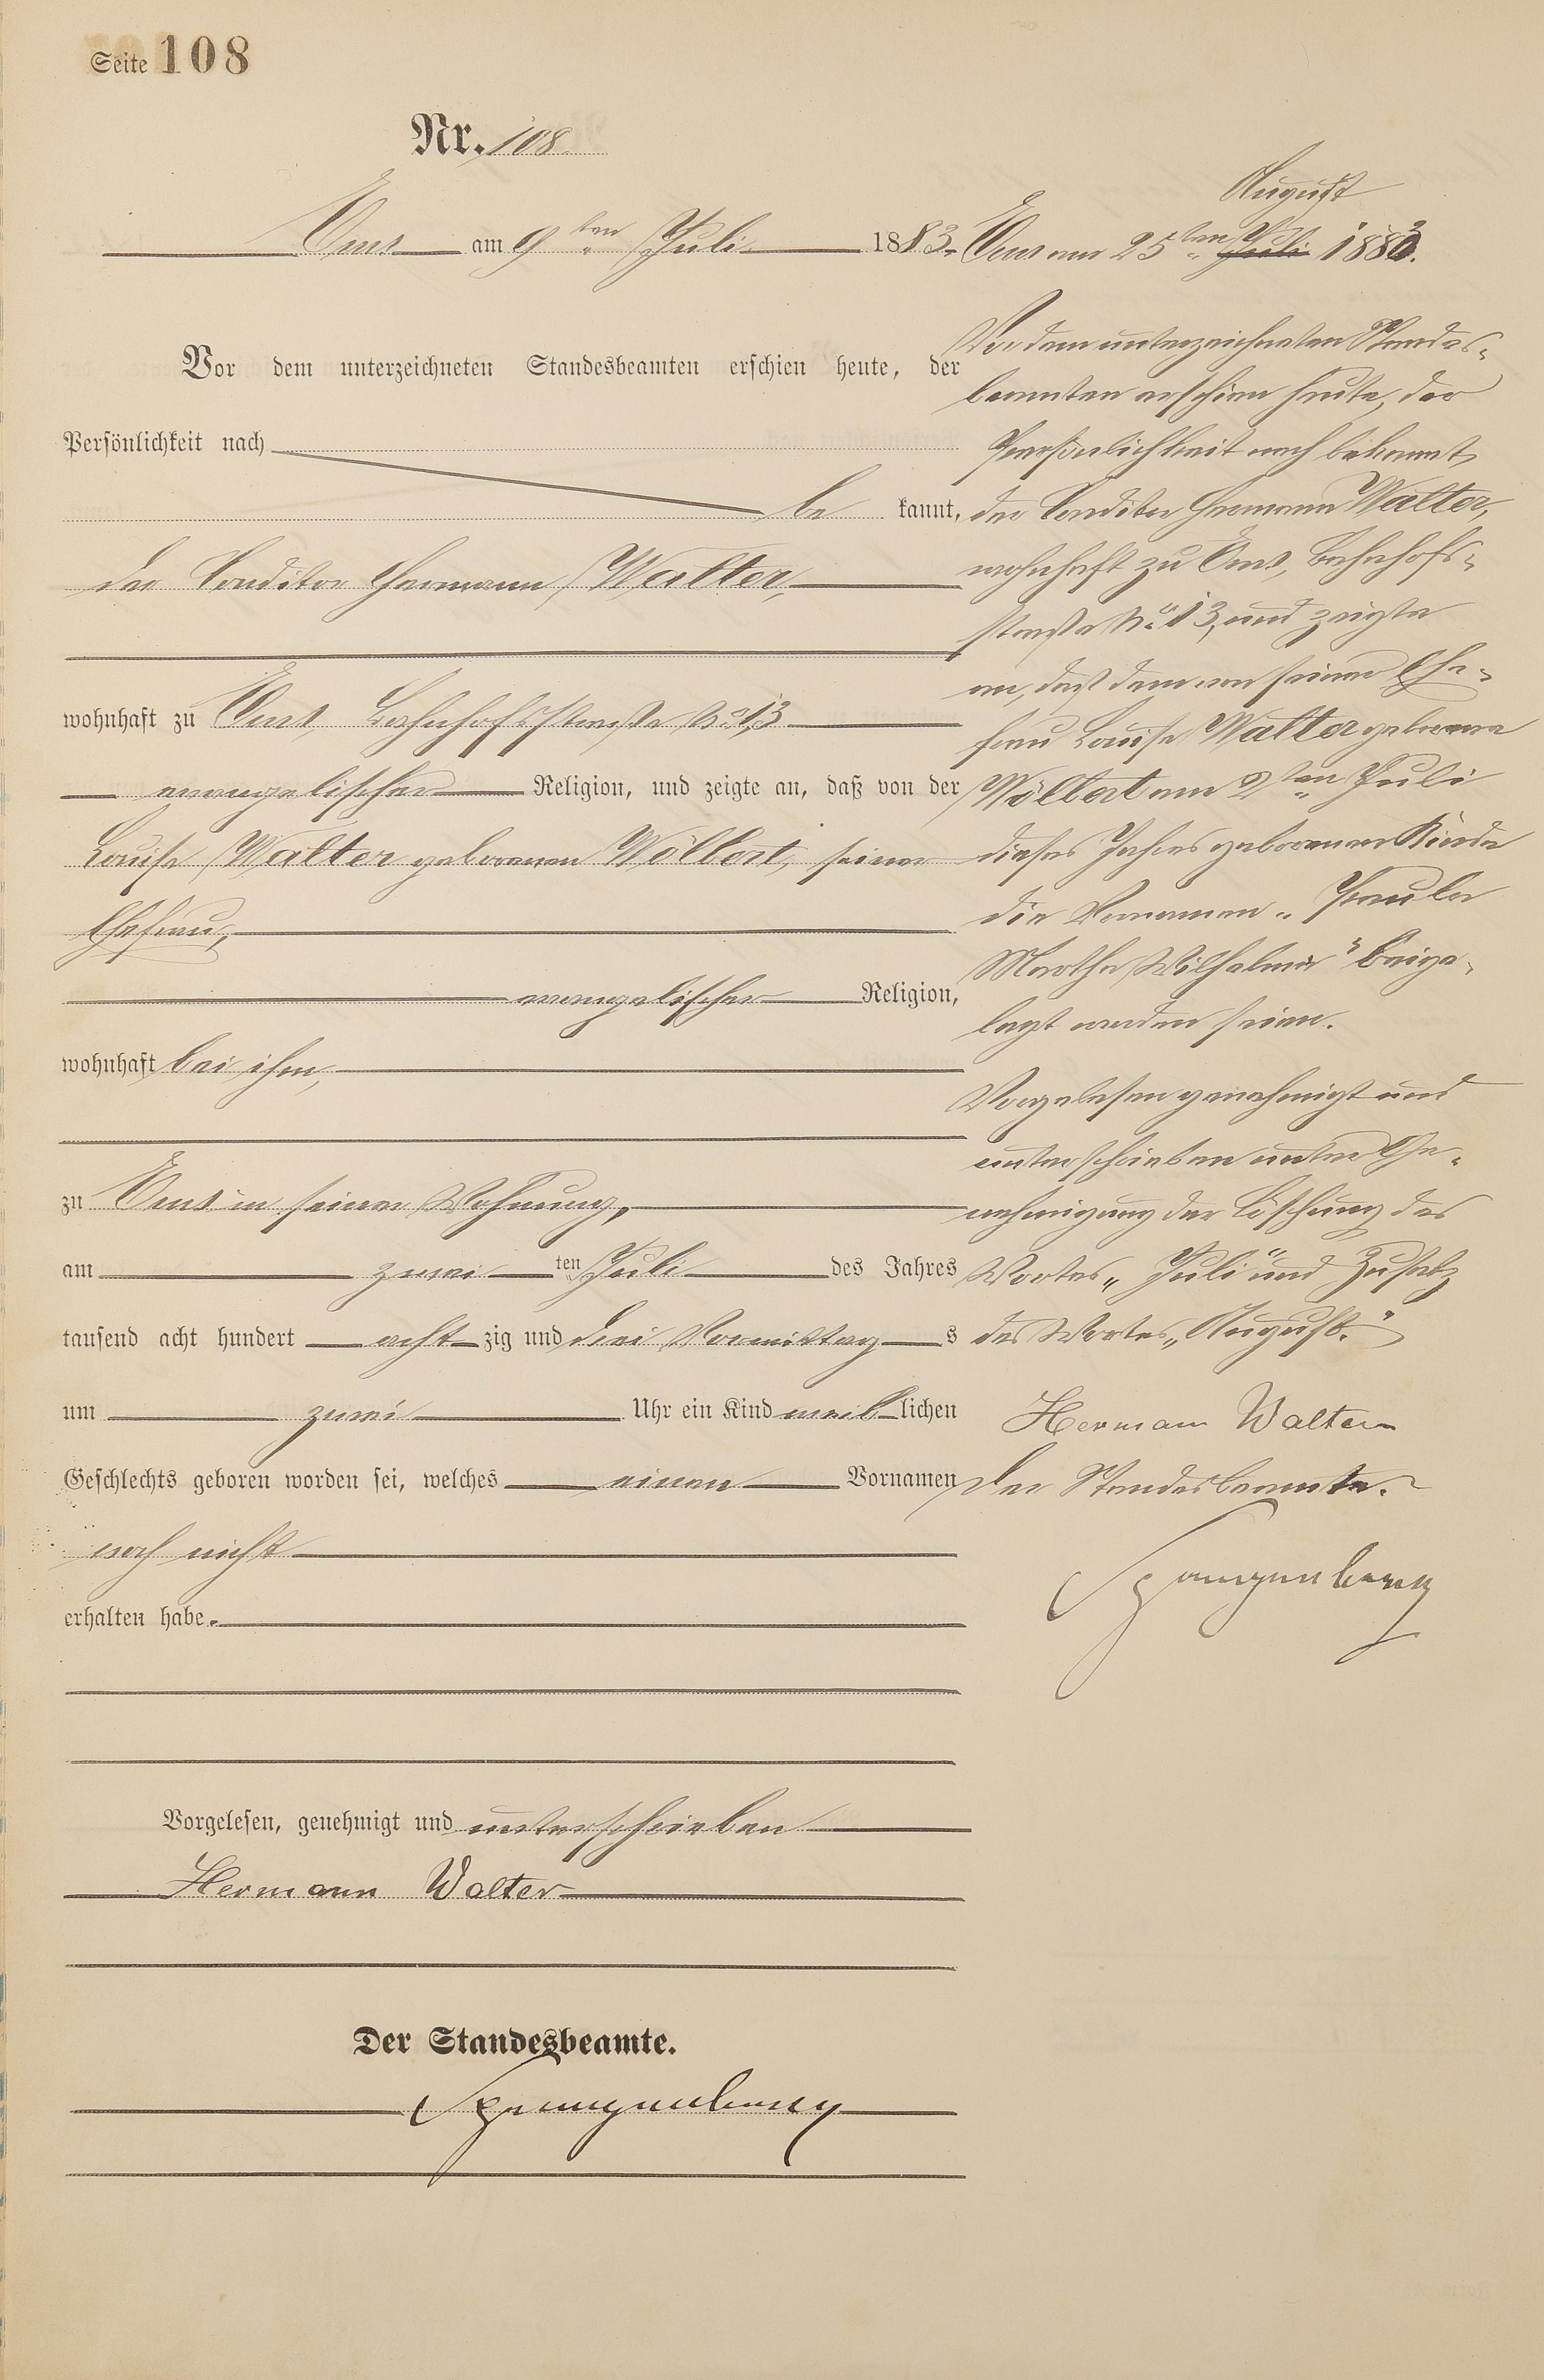 Seite 108
Nr. 108
Ems am 9ten Juli 1883.
Vor dem unterzeichneten Standesbeamten erschien heute, der
Persönlichkeit nach
be kannt,
der Conditor Hermann Walter,
wohnhaft zu Ems Bahnhofsstraße No 13
evangelischer Religion, und zeigte an, daß von der
Louise Walter geborenen Wölbert, seiner
Ehefrau,
evangelischer Religion,
wohnhaft bei ihm,
zu Ems in seiner Wohnung,
am zwei ten Juli des Jahres
tausend acht hundert acht zig und drei Vormittag s
um zwei Uhr ein Kind weib lichen
Geschlechts geboren worden sei, welches einen Vornamen
noch nicht
erhalten habe.
Vorgelesen, genehmigt und unterschrieben
Hermann Walter
Der Standesbeamte.
Spangenberg
August
Ems am 25ten Juli 1883.
Vor dem unterzeichneten Standes-
beamten erschien heute, der
Persönlichkeit nach bekannt,
der Conditor Hermann Walter,
wohnhaft zu Ems, Bahnhofs-
straße No 13, und zeigte
an, daß dem von seiner Ehe-
frau Louise Walter geborene
Wölbert am 2ten Juli
dieses Jahres geborenen Kinde
die Vornamen „Paula
Martha Wilhelmine" beige-
legt worden seien.
Vorgelesen genehmigt und
unterschrieben unter Ge-
nehmigung der Löschung des
Wortes „Juli" und Zusatz
des Wortes „August."
Hermann Walter
Der Standesbeamte.
Spangenberg